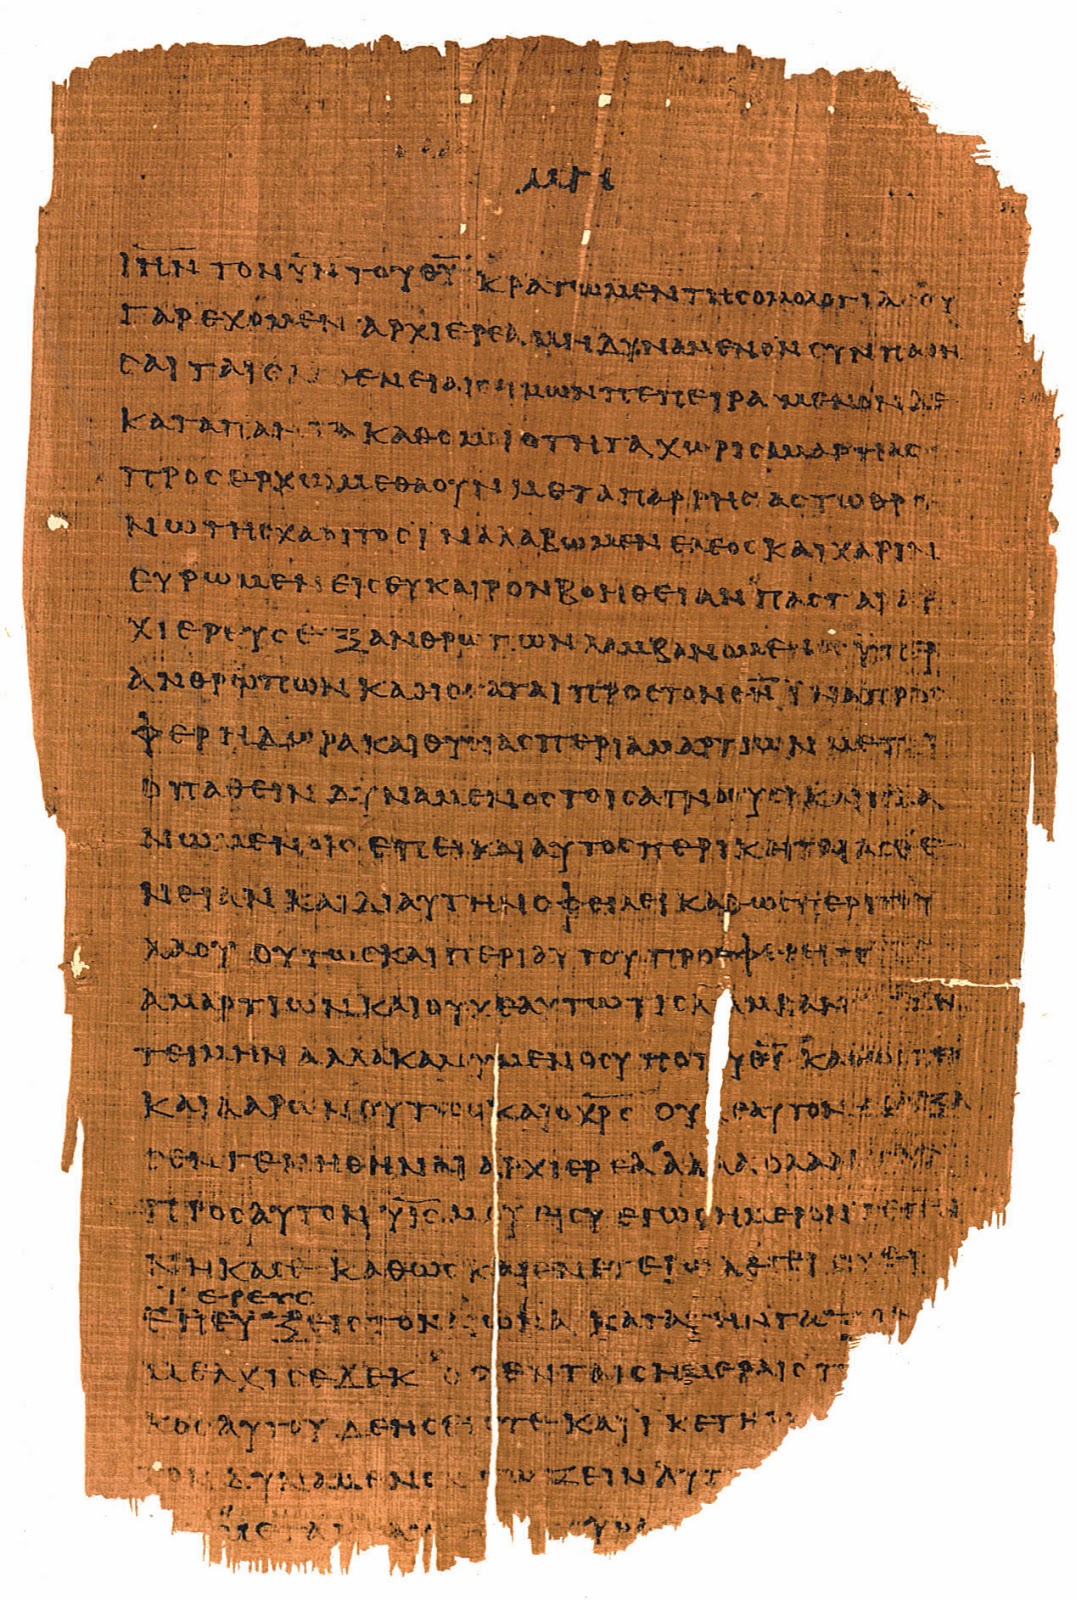 ΙΗΝ ΤΟΝ ΥΝ ΤΟΥ ΘΥ ΚΡΑΤΩΜΕΝ ΤΗϹ ΟΜΟΛΟΓΙΑϹ ΟΥ
ΓΑΡ ΕΧΟΜΕΝ ΑΡΧΙΕΡΕΑ ΜΗ ΔΥΝΑΜΕΝΟΝ ϹΥΝΠΑΘΗ
ϹΑΙ ΤΑΙϹ ΑϹΘΕΝΕΙΑΙϹ ΗΜΩΝ ΠΕΠΕΙΡΑΜΕΝΟΝ ΔΕ
ΚΑΤΑ ΠΑΝΤΑ ΚΑΘ ΟΜΙΟΤΗΤΑ ΧΩΡΙϹ ΑΜΑΡΤΙΑϹ
ΠΡΟϹΕΡΧΩΜΕΘΑ ΟΥΝ ΜΕΤΑ ΠΑΡΡΗϹΑϹ ΤΩ ΘΡΟ
ΝΩ ΤΗϹ ΧΑΡΙΤΟϹ ΙΝΑ ΛΑΒΩΜΕΝ ΕΛΕΟϹ ΚΑΙ ΧΑΡΙΝ
ΕΥΡΩΜΕΝ ΕΙϹ ΕΥΚΑΙΡΟΝ ΒΟΗΘΕΙΑΝ ΠΑϹ ΓΑΡ ΑΡ
ΧΙΕΡΕΥϹ ΕΞ ΑΝΘΡΩΠΩΝ ΛΑΜΒΑΝΟΜΕΝΟϹ ΥΠΕΡ
ΑΝΘΡΩΠΩΝ ΚΑΘΙϹΤΑΤΑΙ ΠΡΟϹ ΤΟΝ ΘΝ ΙΝΑ ΠΡΟϹ
ΦΕΡΗ ΔΩΡΑ ΚΑΙ ΘΥϹΙΑϹ ΠΕΡΙ ΑΜΑΡΤΙΩΝ ΜΕΤΡΙ
ΟΠΑΘΕΙΝ ΔΥΝΑΜΕΝΟϹ ΤΟΙϹ ΑΓΝΟΟΥϹΙ ΚΑΙ ΠΛΑ
ΝΩΜΕΝΟΙϹ ΕΠΕΙ ΚΑΙ ΑΥΤΟϹ ΠΕΡΙΚΗΤΑΙ ΑϹΘΕ
ΝΕΙΑΝ ΚΑΙ ΔΙ ΑΥΤΗΝ ΟΦΕΙΛΕΙ ΚΑΘΩϹ ΠΕΡΙ ΤΟΥ
ΛΑΟΥ ΟΥΤΩϹ ΚΑΙ ΠΕΡΙ ΑΥΤΟΥ ΠΡΟϹΦΕΡΕΙΝ ΠΕΡΙ
ΑΜΑΡΤΙΩΝ ΚΑΙ ΟΥΧ ΕΑΥΤΩ ΤΙϹ ΛΑΜΒΑΝΕΙ ΤΗΝ
ΤΕΙΜΗΝ ΑΛΛΑ ΚΑΛΟΥΜΕΝΟϹ ΥΠΟ ΤΟΥ ΘΥ ΚΑΘΩϹΠΕΡ
ΚΑΙ ΑΑΡΩΝ ΟΥΤΩϹ ΚΑΙ Ο ΧΡϹ ΟΥΧ ΕΑΥΤΟΝ ΕΔΟΞΑ
ϹΕΝ ΓΕΝΗΘΗΝΑΙ ΑΡΧΙΕΡΕΑ ΑΛΛΑ Ο ΛΑΛΗϹΑϹ
ΠΡΟϹ ΑΥΤΟΝ ΥΙϹ ΜΟΥ ΕΙ ϹΥ ΕΓΩ ϹΗΜΕΡΟΝ ΓΕΓΕΝ
ΝΗΚΑ ϹΕ ΚΑΘΩϹ ΚΑΙ ΕΝ ΕΤΕΡΩ ΛΕΓΕΙ ϹΥ ΕΙ
ΙΕΡΕΥϹ
ΕΠΕΥΞ ΕΙϹ ΤΟΝ ΑΙΩΝΑ ΚΑΤΑ ΤΗΝ ΤΑΞΙΝ
ΜΕΛΧΙϹΕΔΕΚ ΟϹ ΕΝ ΤΑΙϹ ΗΜΕΡΑΙϹ Τ
ΚΟϹ ΑΥΤΟΥ ΔΕΗϹΕΙϹ ΤΕ ΚΑΙ ΙΚΕΤΗΡ
ΤΟΝ ΔΥΝΑΜΕΝΟΝ ϹΩΖΕΙΝ ΑΥΤ